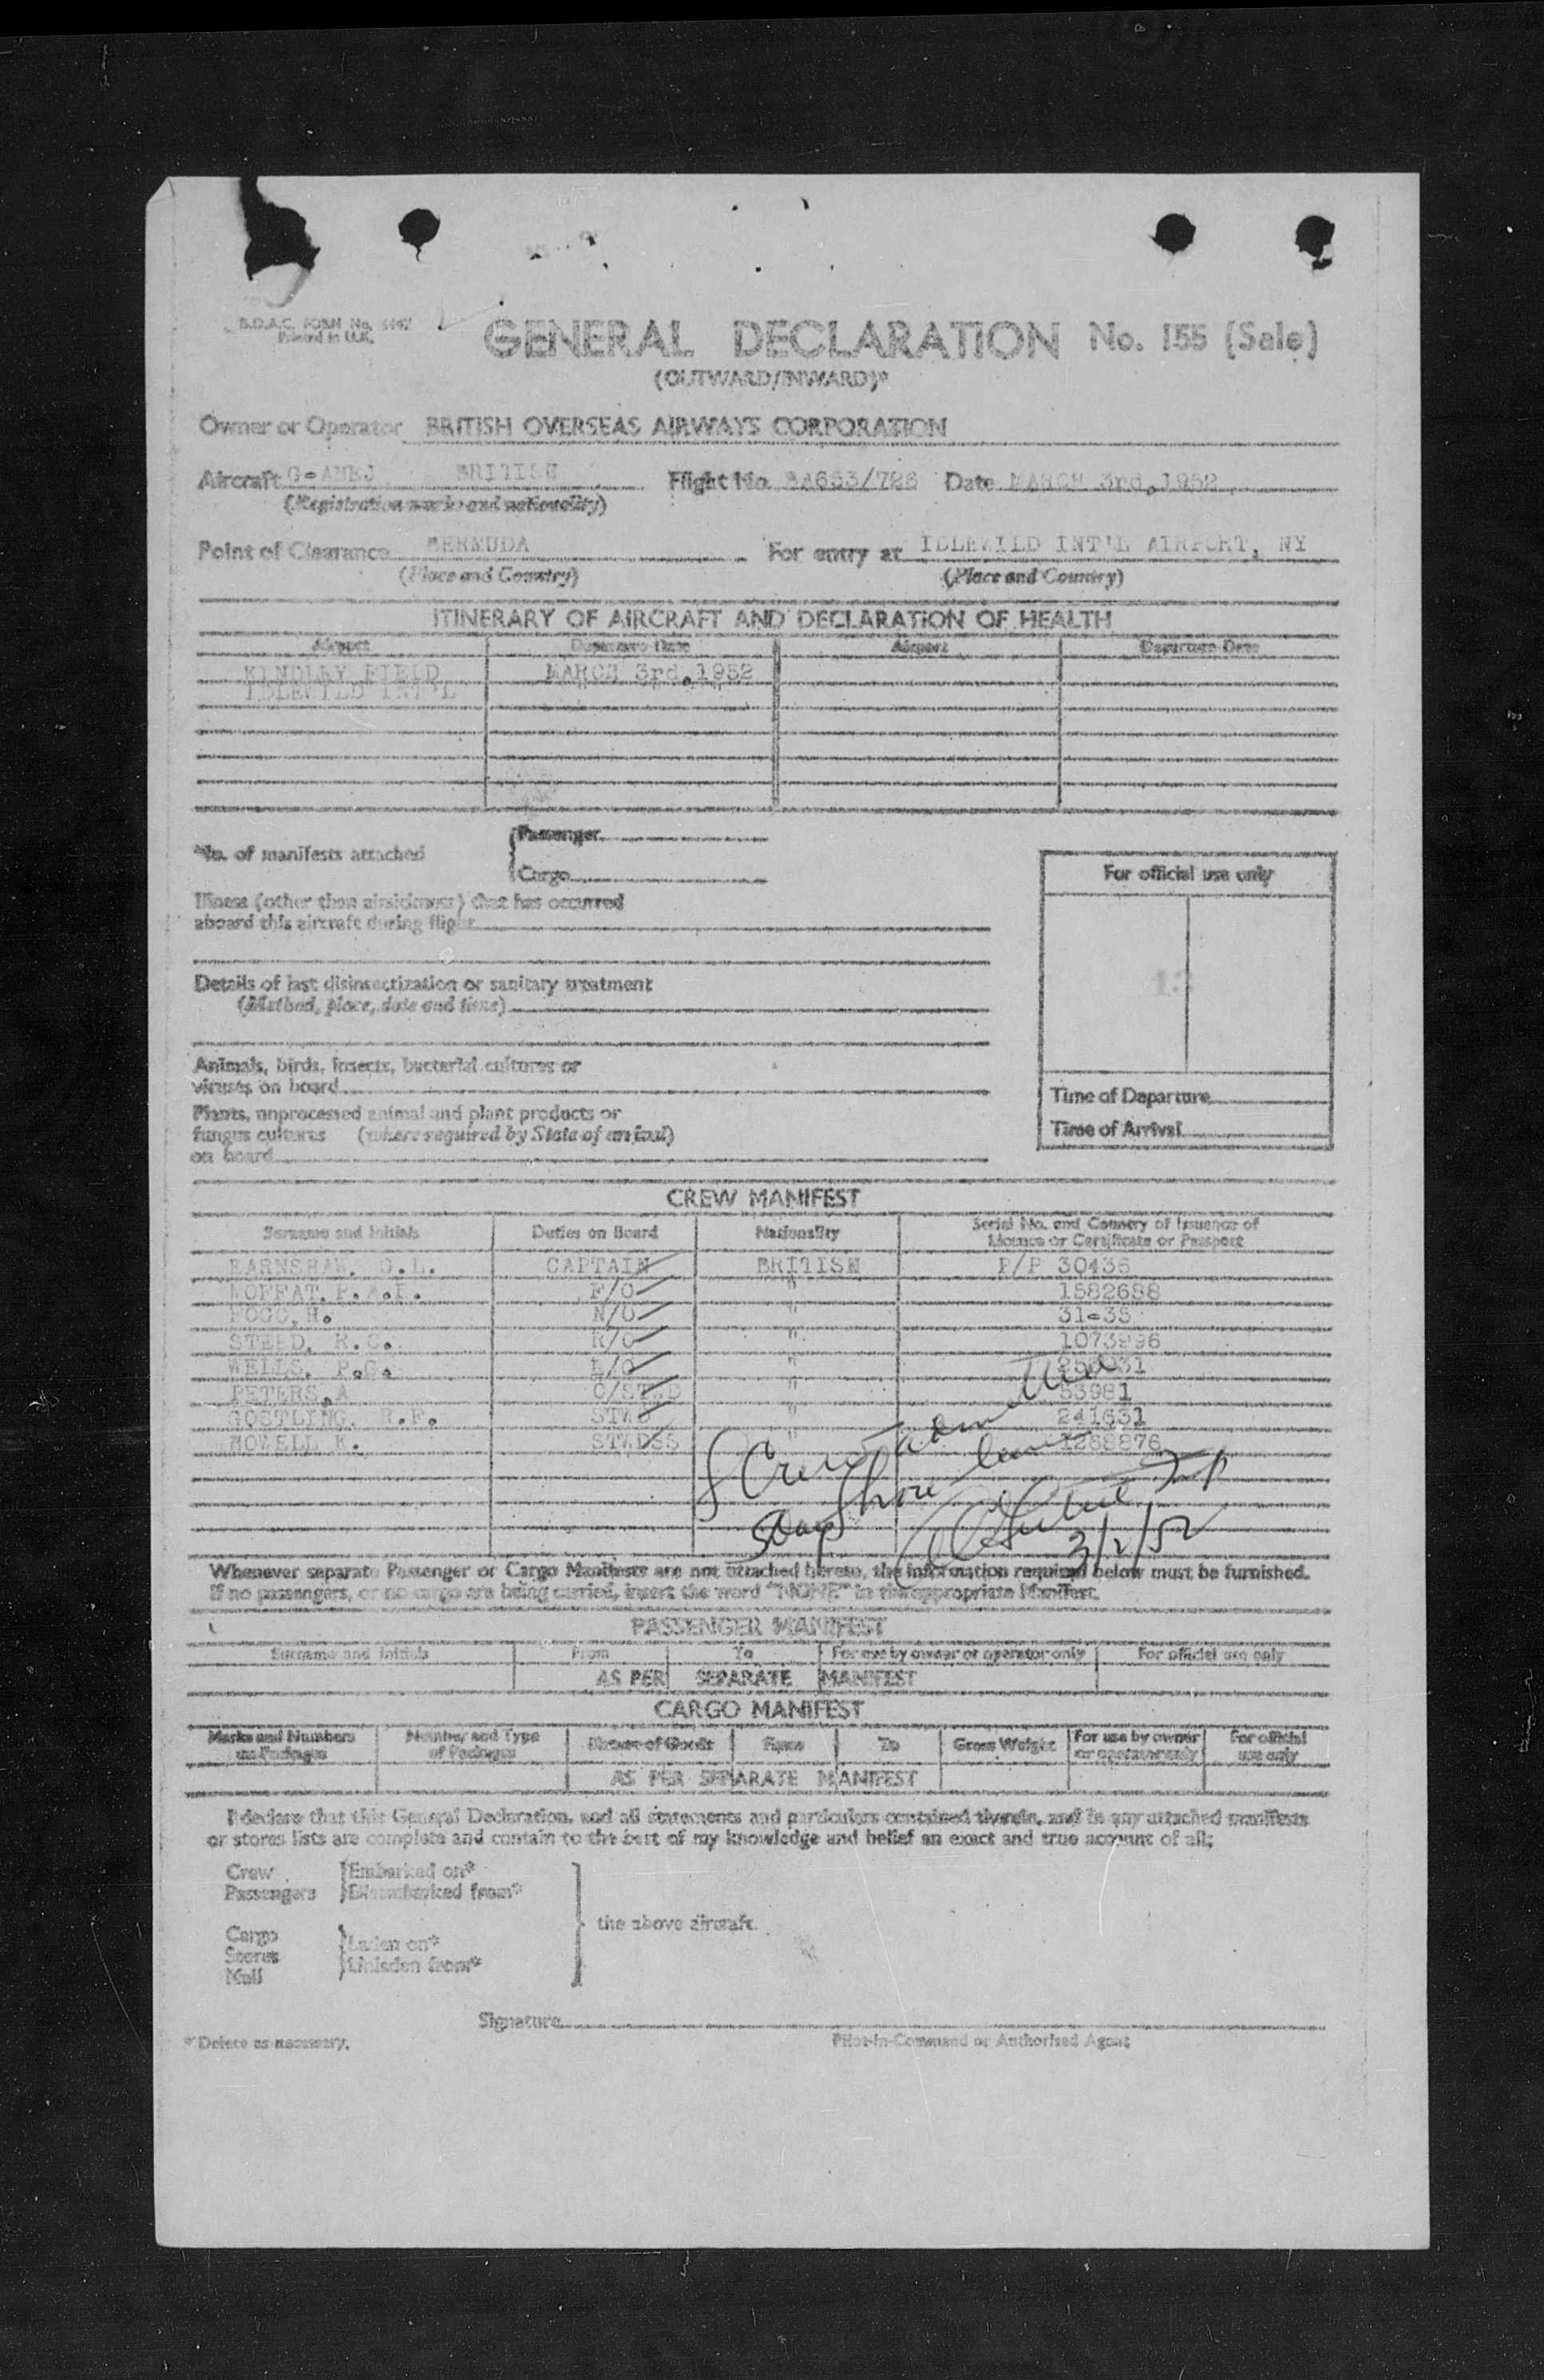 B.O.A.C. FORM No.
Printed in U.K.
GENERAL DECLARATION No. 155 (Sale)
(OUTWARD/INWARD)*
Owner or Operator BRITISH OVERSEAS AIRWAYS CORPORATION
Aircraft BRITISH Flight No. BA653/726 Date MARCH 3rd,1952
(Registration marks and nationality)
Point of Clearance BERMUDA For entry at IDLEWILD INT'L AIRPORT, NY
(Place and Country) (Place and Country)
ITINERARY OF AIRCRAFT AND DECLARATION OF HEALTH
Airport Departure Date Airport Departure Date
KINDLEY FIELD MARCH 3rd,1952
IDLEWILD INT'L
No. of manifests attached
Passenger
Cargo
Illness (other than airsickness) that has occurred
aboard this aircraft during flight
Details of last disinsectization or sanitary treatment
(Method, place, date and time)
Animals, birds, insects, bacterial cultures or
viruses on board
Plants, unprocessed animal and plant products or
fungus cultures (where required by State of arrival)
on board
For official use only
Time of Departure
Time of Arrival
CREW MANIFEST
Surname and Initials Duties on Board Nationality Serial No. and Country of Issuance of
Licence or Certificate or Passport
EARNSHAW, G.L. CAPTAIN BRITISH P/P 30436
MOFFAT, P.A.I. F/O " 1582688
FOGG,H. N/O " 31-35
STEED, R.C. R/O " 1073996
WELLS, P.G. E/O "
PETERS,A C/STWD " 53981
GOSTLING, R.F. STWD " 241631
HOWELL K. STWDSS " 1268876
Crew admitted
Shore leave
3/2/52
Whenever separate Passenger or Cargo Manifests are not attached hereto, the information required below must be furnished.
If no passengers, or no cargo are being carried, insert the word "NONE" in the appropriate Manifest.
PASSENGER MANIFEST
Surname and Initials From To For use by owner or operator only For official use only
AS PER SEPARATE MANIFEST
CARGO MANIFEST
Marks and Numbers on Packages Number and Type of Packages Nature of Goods From To Gross Weight For use by owner or operator only For official use only
AS PER SEPARATE MANIFEST
I declare that this General Declaration, and all statements and particulars contained therein, and in any attached manifests
or stores lists are complete and contain to the best of my knowledge and belief an exact and true account of all;
Crew Embarked on*
Passengers Disembarked from*
the above aircraft.
Cargo
Stores
Mail
Laden on*
Unladen from*
Signature
*Delete as necessary. Pilot-in-Command or Authorised Agent